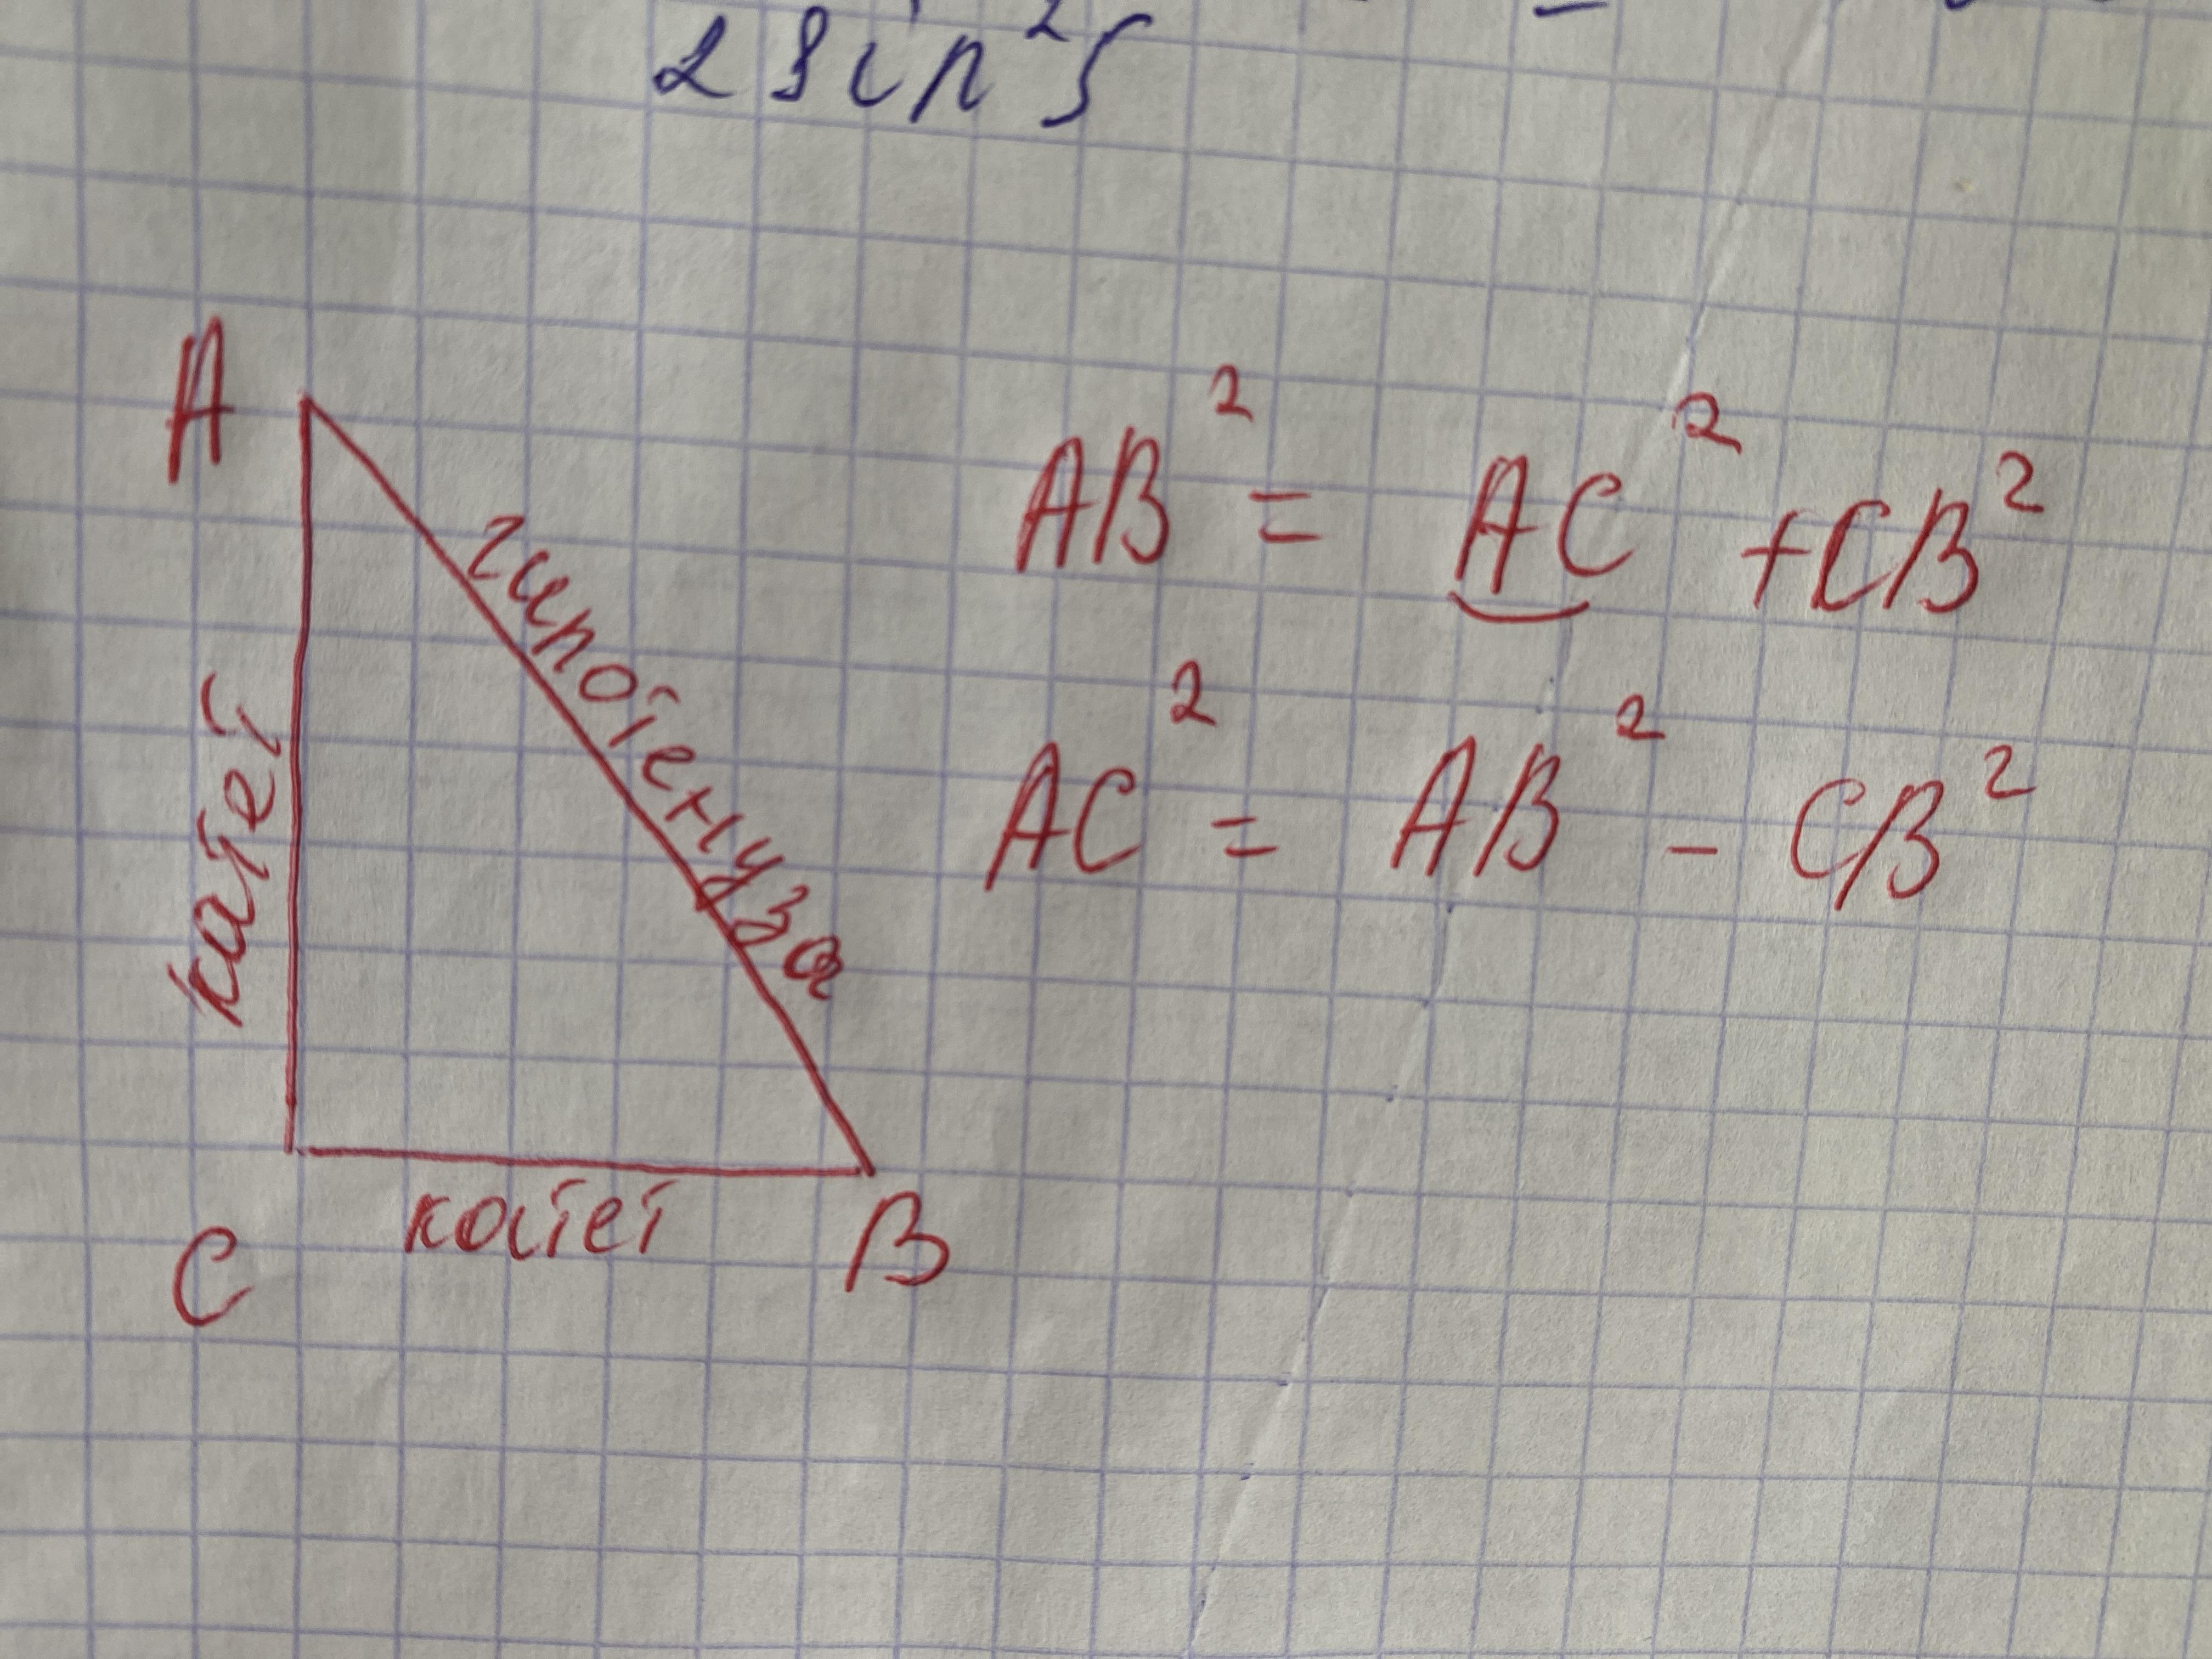 2 sin²
A
гипотенуза
катет
C
катет
B
AB² = AC² + CB²
AC² = AB² - CB²